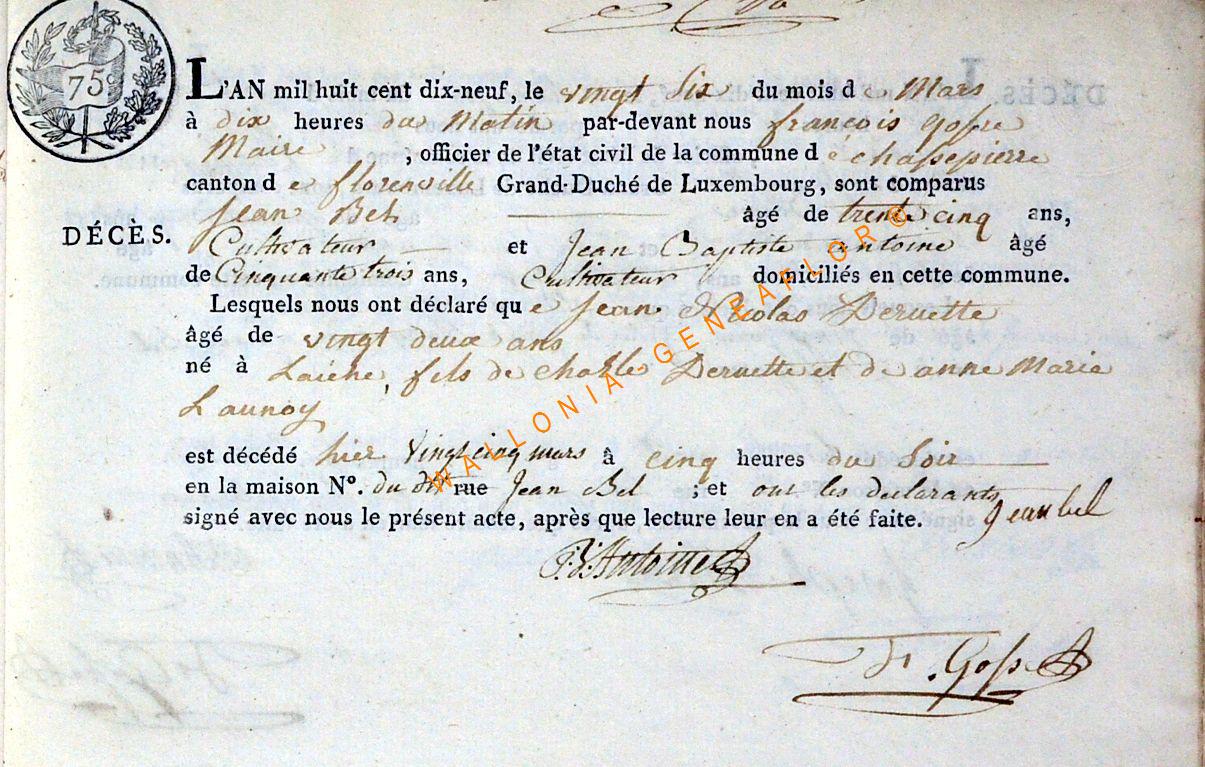 75c
L'AN mil huit cent dix-neuf, le vingt Six du mois de Mars
à dix heures du Matin par-devant nous francois Gofre
Maire , officier de l'état civil de la commune de chassepierre
canton de florenville Grand-Duché de Luxembourg, sont comparus
Jean Bel âgé de trente cinq ans,
DÉCÈS.
Cultivateur et Jean Baptiste antoine âgé
de Cinquante trois ans, Cultivateur domiciliés en cette commune.
Lesquels nous ont déclaré que Jean Nicolas Deruette
âgé de vingt deux ans
né à Laiche, fils de charle Deruette et de anne Maria
Launoy
est décédé hier vingt cinq mars à cinq heures du Soir
en la maison N°. du dit rue Jean Bel ; et ont les declarants
signé avec nous le présent acte, après que lecture leur en a été faite. Jean bel
Antoine
WALLONIA-GENEAFLOR©